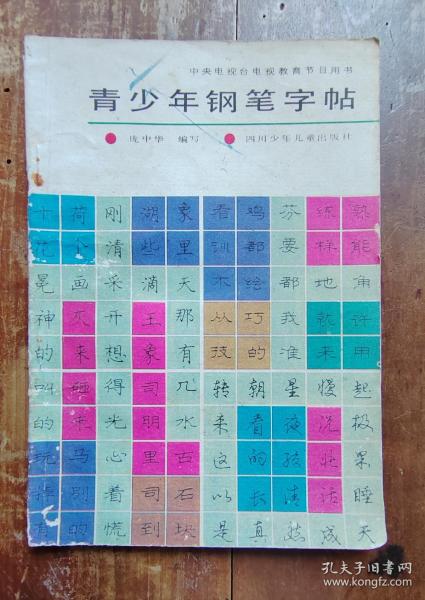 中央电视台电视教育节目用书
青少年钢笔字帖
庞中华 编写 四川少年儿童出版社
十荷刚湖象看鸡芬练熟
花个清些里训都要样能
冕画采滴天木绘都地角
神灭开王那从巧我就许
的来想象有技的准来用
叫砸得司几转朝星慢起
的缸光朋水来看夜沉极
玩马心里古这的孩壮果
掉别着司石以长清话睡
有的慌到块是真 成天
孔夫子旧书网
www.kongfz.com